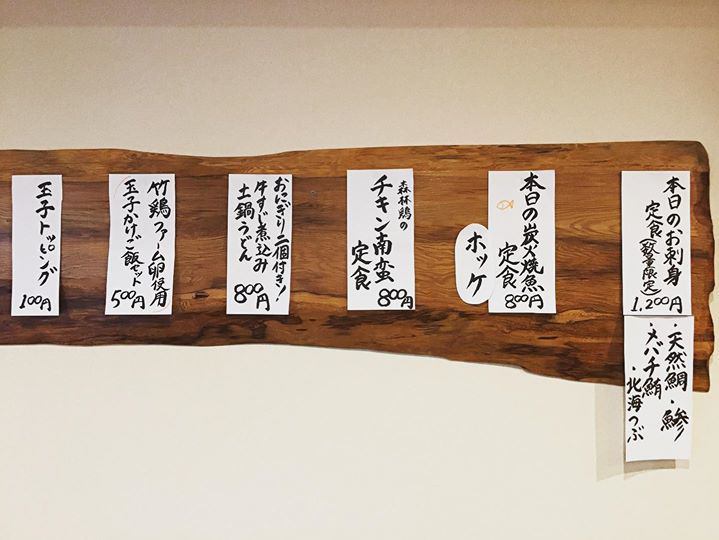 本日のお刺身
定食(数量限定)
1,200円
・天然鯛・鯵
・メバチ鮪
・北海つぶ
本日の炭火焼魚
定食
800円
ホッケ
森林鶏の
チキン南蛮
定食
800円
おにぎり二個付き!
牛すじ煮込み
土鍋うどん
800円
竹鶏ファーム卵使用
玉子かけご飯セット
500円
玉子トッピング
100円